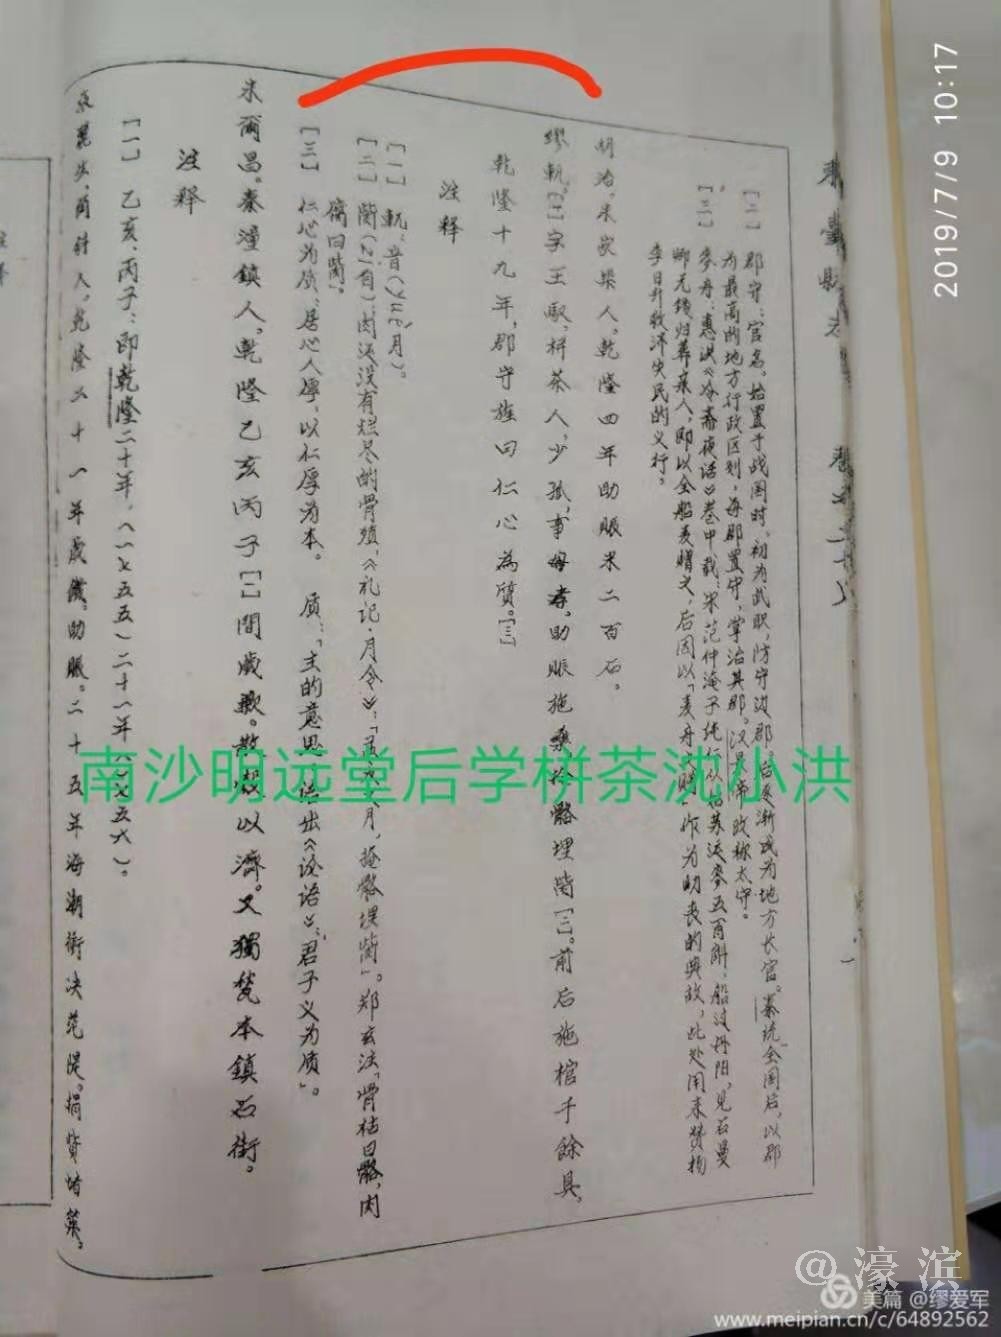 [二] 郡守：官名。始置于战国时。初为武职，防守边郡，后逐渐成为地方长官。秦统全国后，以郡
为最高的地方行政区划，每郡置守，掌治其郡。汉景帝改称太守。
[三] 麦舟：惠洪《冷斋夜话》卷中载：宋范仲淹子纯仁从姑苏运麥五百斛，船过丹阳，见石曼
卿无钱归葬亲人，即以全船麦赠之，后因以「麦舟之赠」作为助丧的典故，此处用来赞扬
李日升救济灾民的义行。
胡治 家 人，乾隆四年助赈米二百石。
缪軏[一]字王馭，栟茶人，少孤，事母孝，助賑施藥拾骼埋胔[二]。前后施棺千餘具，
乾隆十九年，郡守旌曰仁心為質。[三]
注释
[一] 軏：音(yuè月)。
[二] 胔(zì自)：肉还没有烂尽的骨殖，《礼记·月令》：「孟春之月，掩骼埋胔」。郑玄注「骨枯曰骼，肉
腐曰胔」。
[三] 仁心为质：居心人厚，以仁厚为本。 质：「主的意思，语出《论语》：君子义为质」。
朱爾昌。秦潼鎮人，乾隆乙亥丙子[一]間歲歉。散 以濟。又獨甃本鎮石街。
注释
[一] 乙亥、丙子：即乾隆二十年，(一七五五)二十一年(一七五六)。
人，乾隆二十一年歲饑，助賑。二十五年海潮衝决范隄。捐貲堵築。
東臺縣志
南沙明远堂后学栟茶沈小洪
2019/7/9 10:17
@濠滨
美篇 @缪爱军
www.meipian.cn/c/64892562